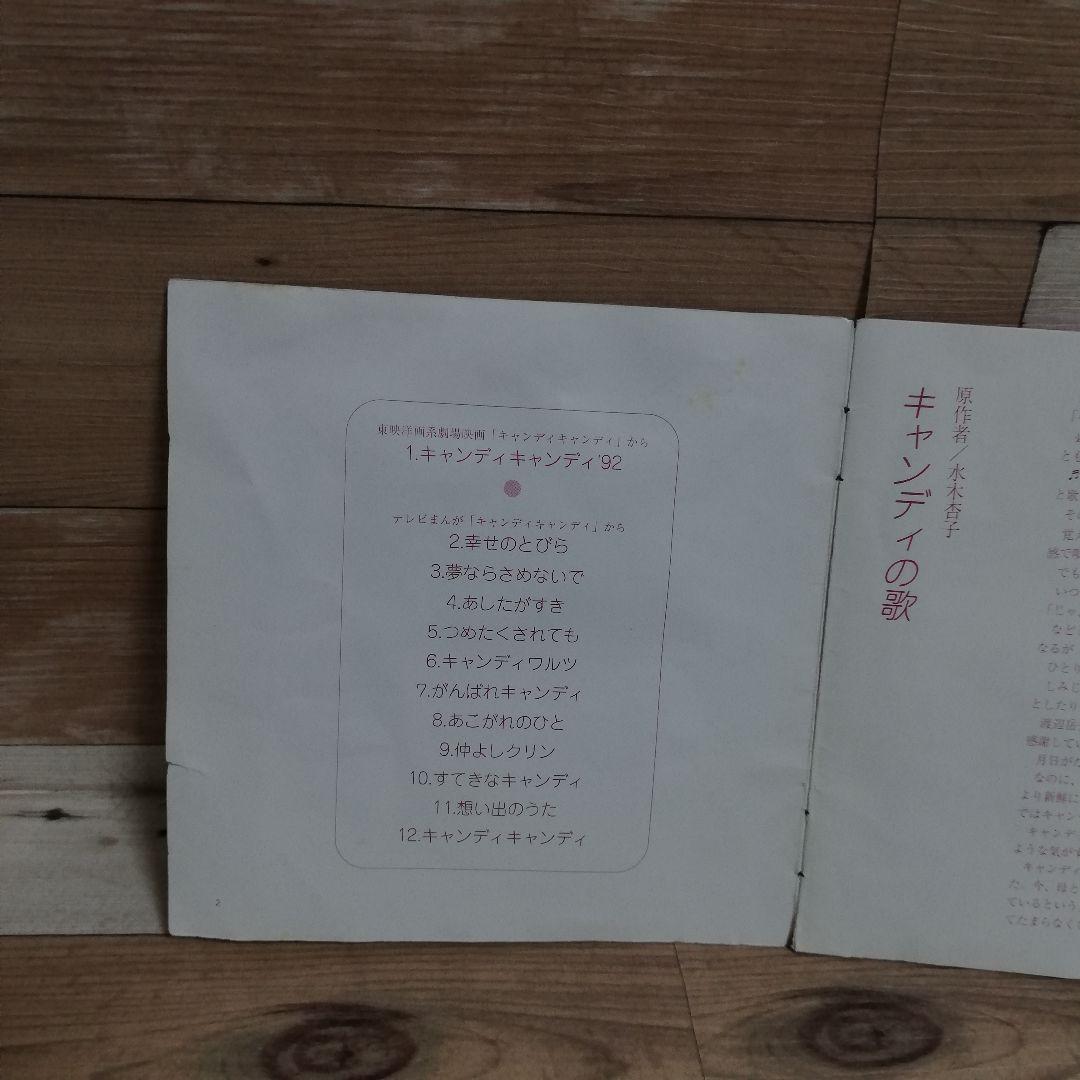 東映洋画系劇場映画「キャンディキャンディ」から
1.キャンディキャンディ'92
テレビまんが「キャンディキャンディ」から
2.幸せのとびら
3.夢ならさめないで
4.あしたがすき
5.つめたくされても
6.キャンディワルツ
7.がんばれキャンディ
8.あこがれのひと
9.仲よしクリン
10.すてきなキャンディ
11.想い出のうた
12.キャンディキャンディ
2
原作者/水木杏子
キャンディの歌
と歌
感で
でも
いつ
「じゃ
など
なるが
ひとり
しみじ
としたり
渡辺岳
感謝してい
月日がた
なのに、
より新鮮に
ではキャン
キャンデ
ような気がす
キャンディ
た。今、母と
ているという
てたまらなく